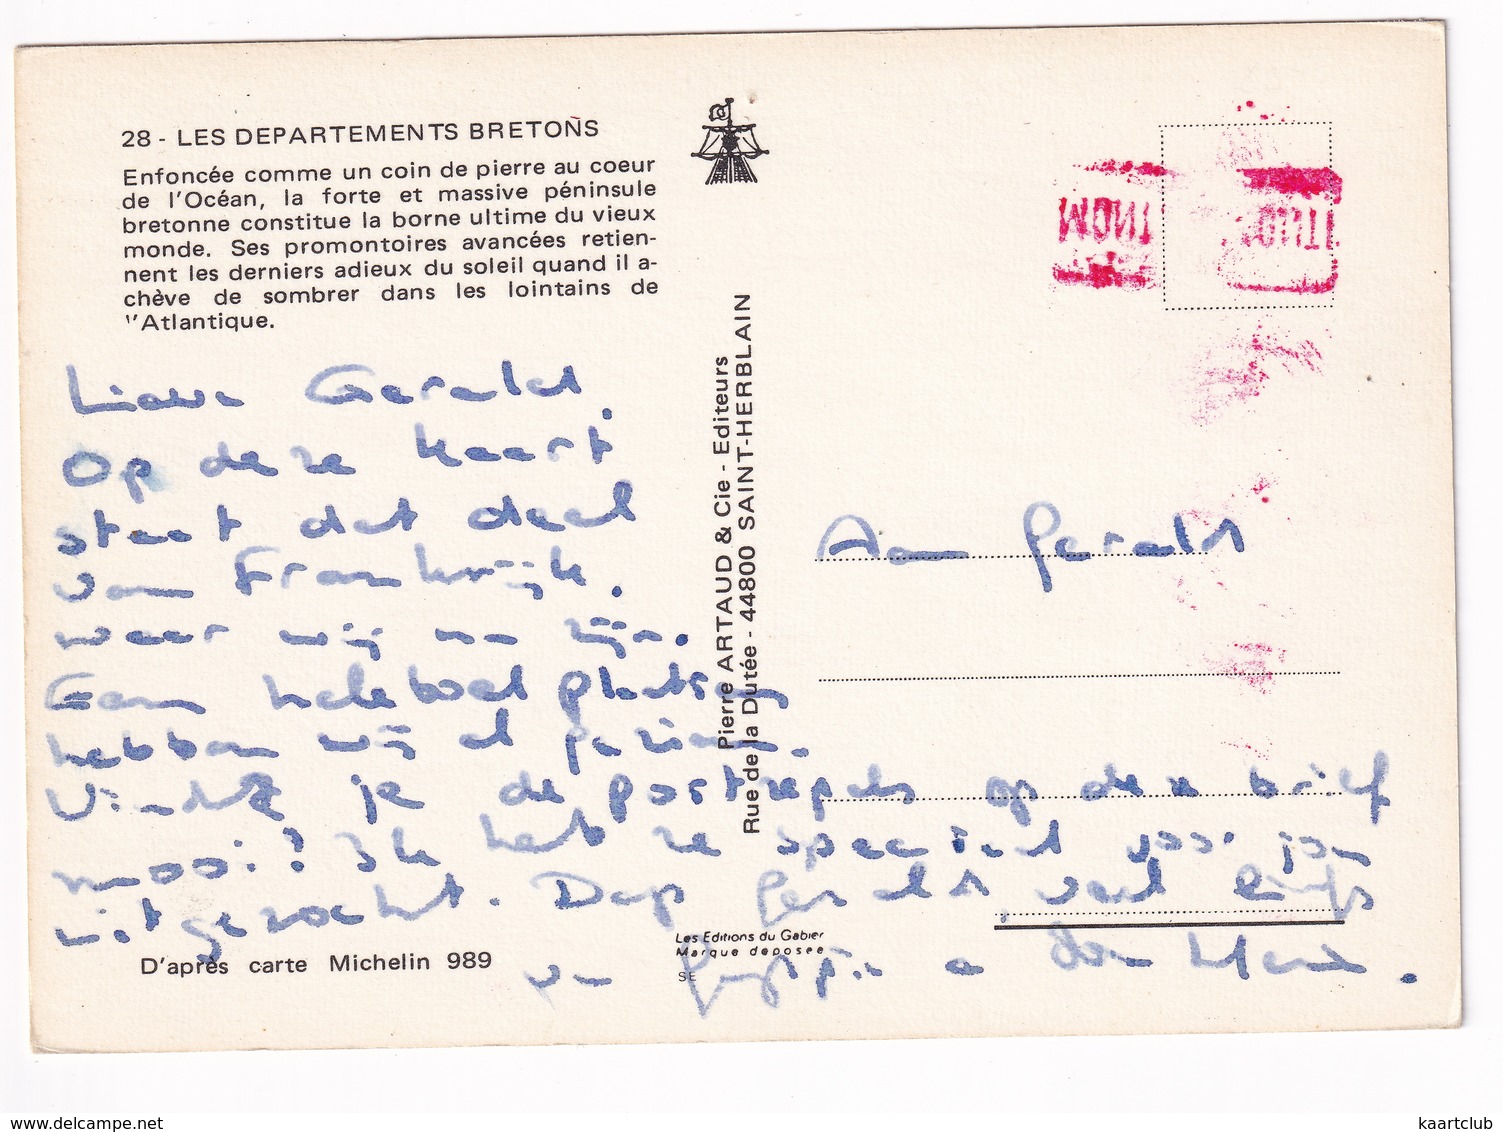 28 - LES DEPARTEMENTS BRETONS
Enfoncée comme un coin de pierre au coeur
de l'Océan, la forte et massive péninsule
bretonne constitue la borne ultime du vieux
monde. Ses promontoires avancées retien-
nent les derniers adieux du soleil quand il a-
chève de sombrer dans les lointains de
l'Atlantique.
Lieve Gerald,
Op deze kaart
staat dat deel
van Frankrijk.
waar wij nu zijn.
Een heleboel plaatsen
hebben wij al gezien.
Vindt je de postzegels op deze brief
mooi? Ik heb ze speciaal voor jou
uitgezocht. Dag Gerald, veel liefs
van en
Aan Gerald
Pierre ARTAUD & Cie - Editeurs
Rue de la Dutée - 44800 SAINT-HERBLAIN
D'après carte Michelin 989
Les Editions du Gabier
Marque deposee
SE
MONT
kaartclub